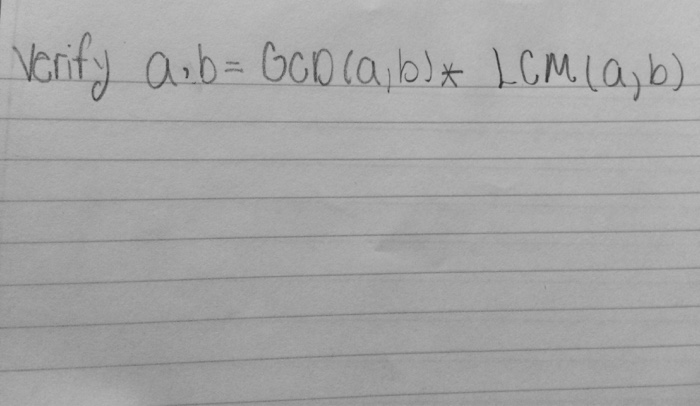 Verify a.b = GCD(a,b) * LCM(a,b)